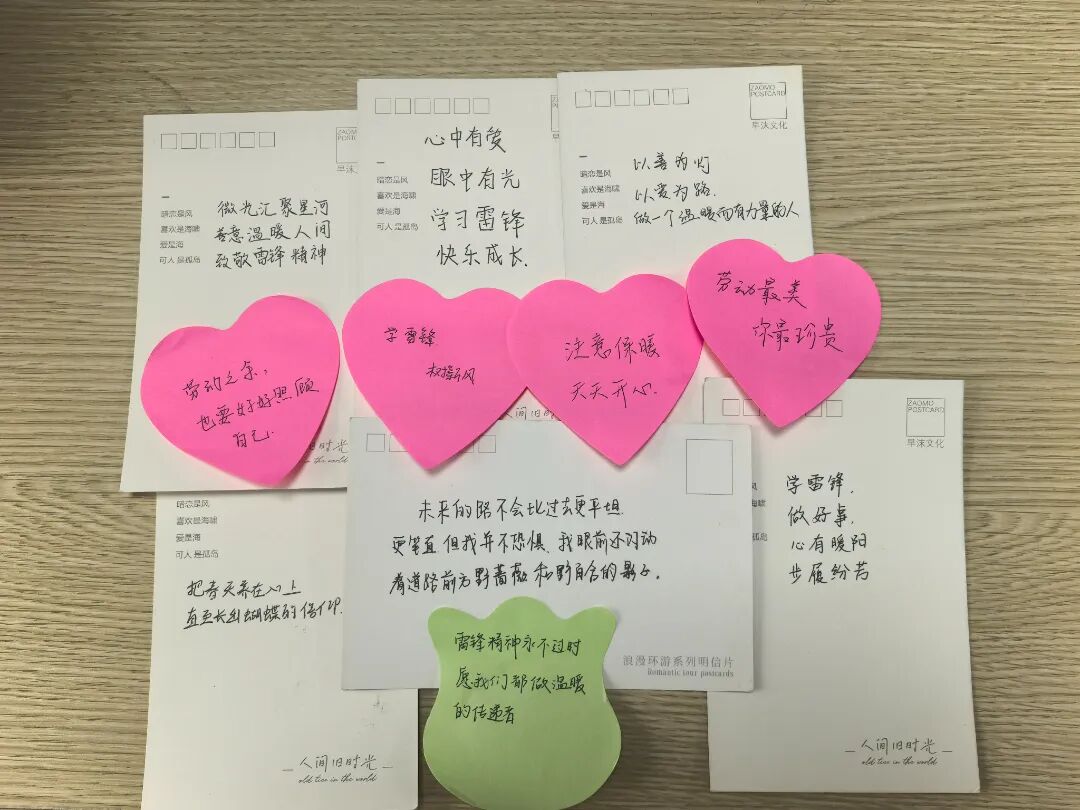 ZAOMO
早沫
暗恋是风
喜欢是海啸
爱是海
可人是孤岛
微光汇聚星河
善意温暖人间
致敬雷锋精神
暗恋是风
喜欢是海啸
爱是海
可人是孤岛
心中有爱
眼中有光
学习雷锋
快乐成长.
ZAOMO
POSTCARD
早沫文化
暗恋是风
喜欢是海啸
爱是海
可人是孤岛
以善为灯
以爱为路.
做一个温暖而有力量的人
劳动之余,
也要好好照顾
自己.
学雷锋
树新风
注意保暖
天天开心.
劳动最美
你最珍贵
旧时光
in the world
人间旧时
暗恋是风
喜欢是海啸
爱是海
可人是孤岛
把春天养在心上
直至长出蝴蝶的
人间旧时光
old time in the world
未来的路不会比过去更平坦
更笔直 但我并不恐惧、我眼前还闪动
着道路前方野蔷薇和野百合的影子.
浪漫环游系列明信片
Romantic tour postcards
ZAOMO
POSTCARD
早沫文化
学雷锋.
做好事.
心有暖阳
步履纷若
人间旧时光
old time in the world
雷锋精神永不过时
愿我们都做温暖
的传递者